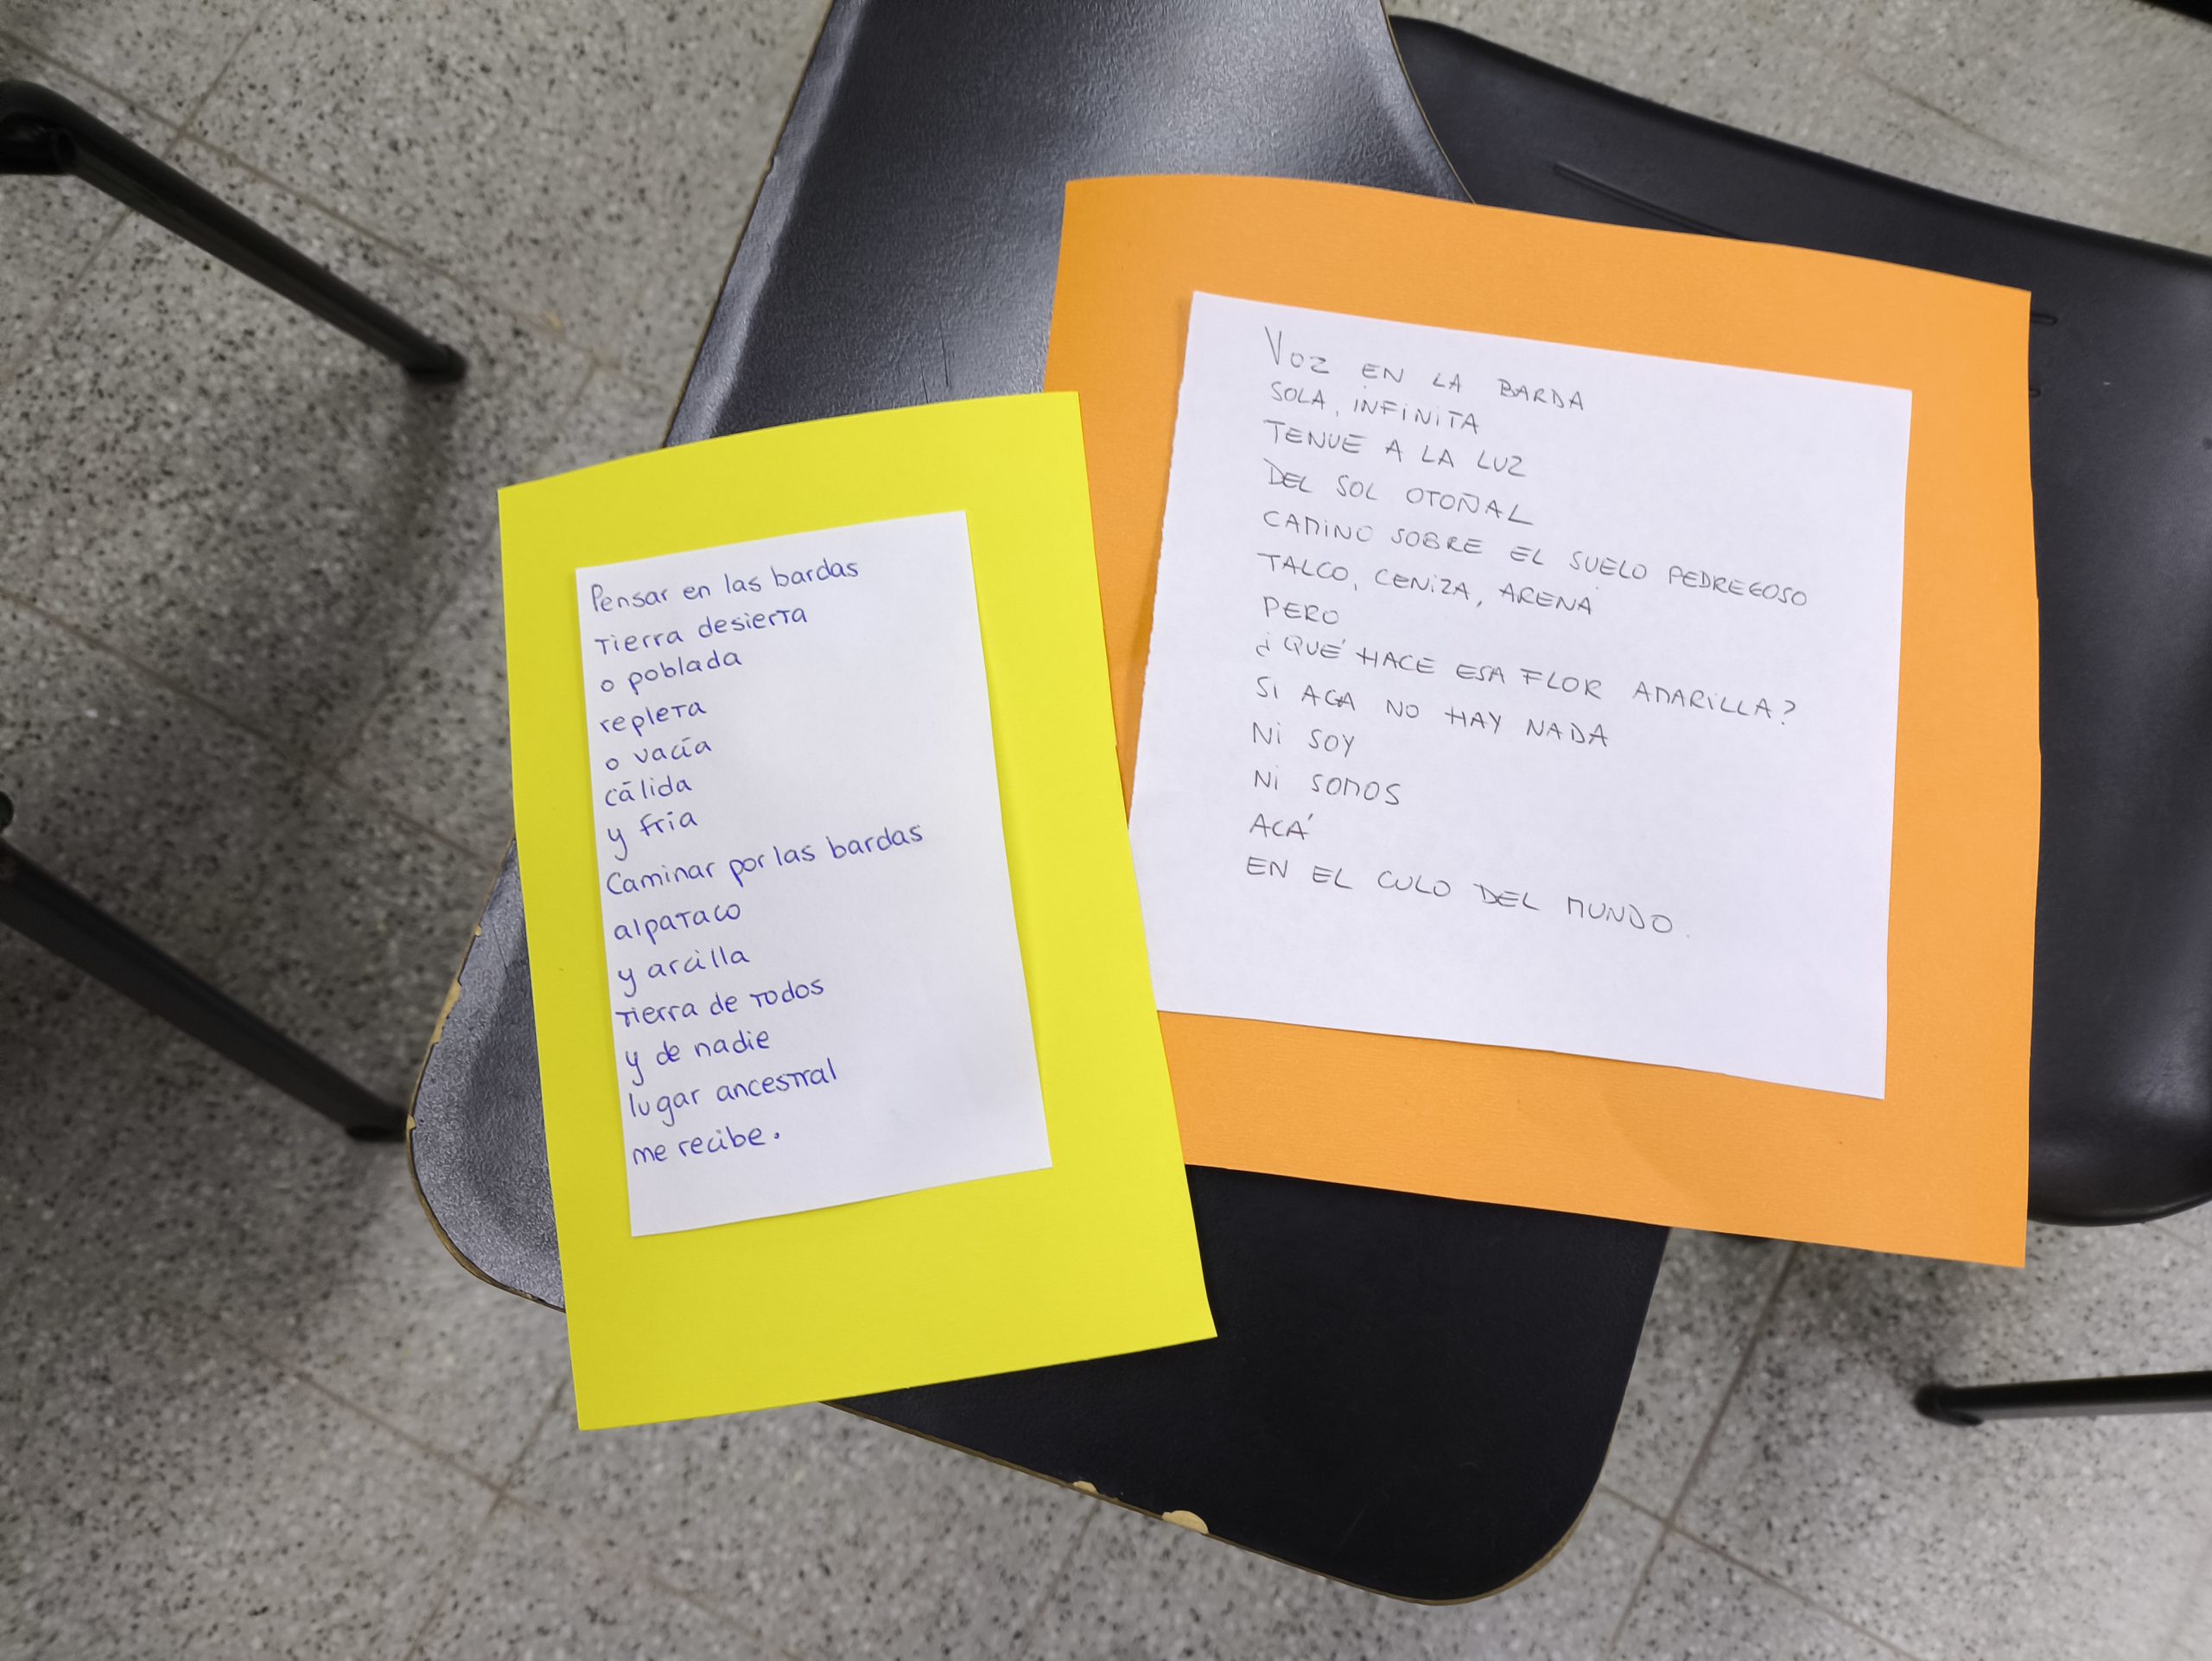 Pensar en las bardas
Tierra desierta
o poblada
repleta
o vacía
cálida
y fría
Caminar por las bardas
alpataco
y arcilla
Tierra de todos
y de nadie
lugar ancestral
me recibe.
VOZ EN LA BARDA
SOLA, INFINITA
TENUE A LA LUZ
DEL SOL OTOÑAL
CAMINO SOBRE EL SUELO PEDREGOSO
TALCO, CENIZA, ARENA
PERO
¿QUÉ HACE ESA FLOR AMARILLA?
SI ACA NO HAY NADA
NI SOY
NI SOMOS
ACÁ
EN EL CULO DEL MUNDO.